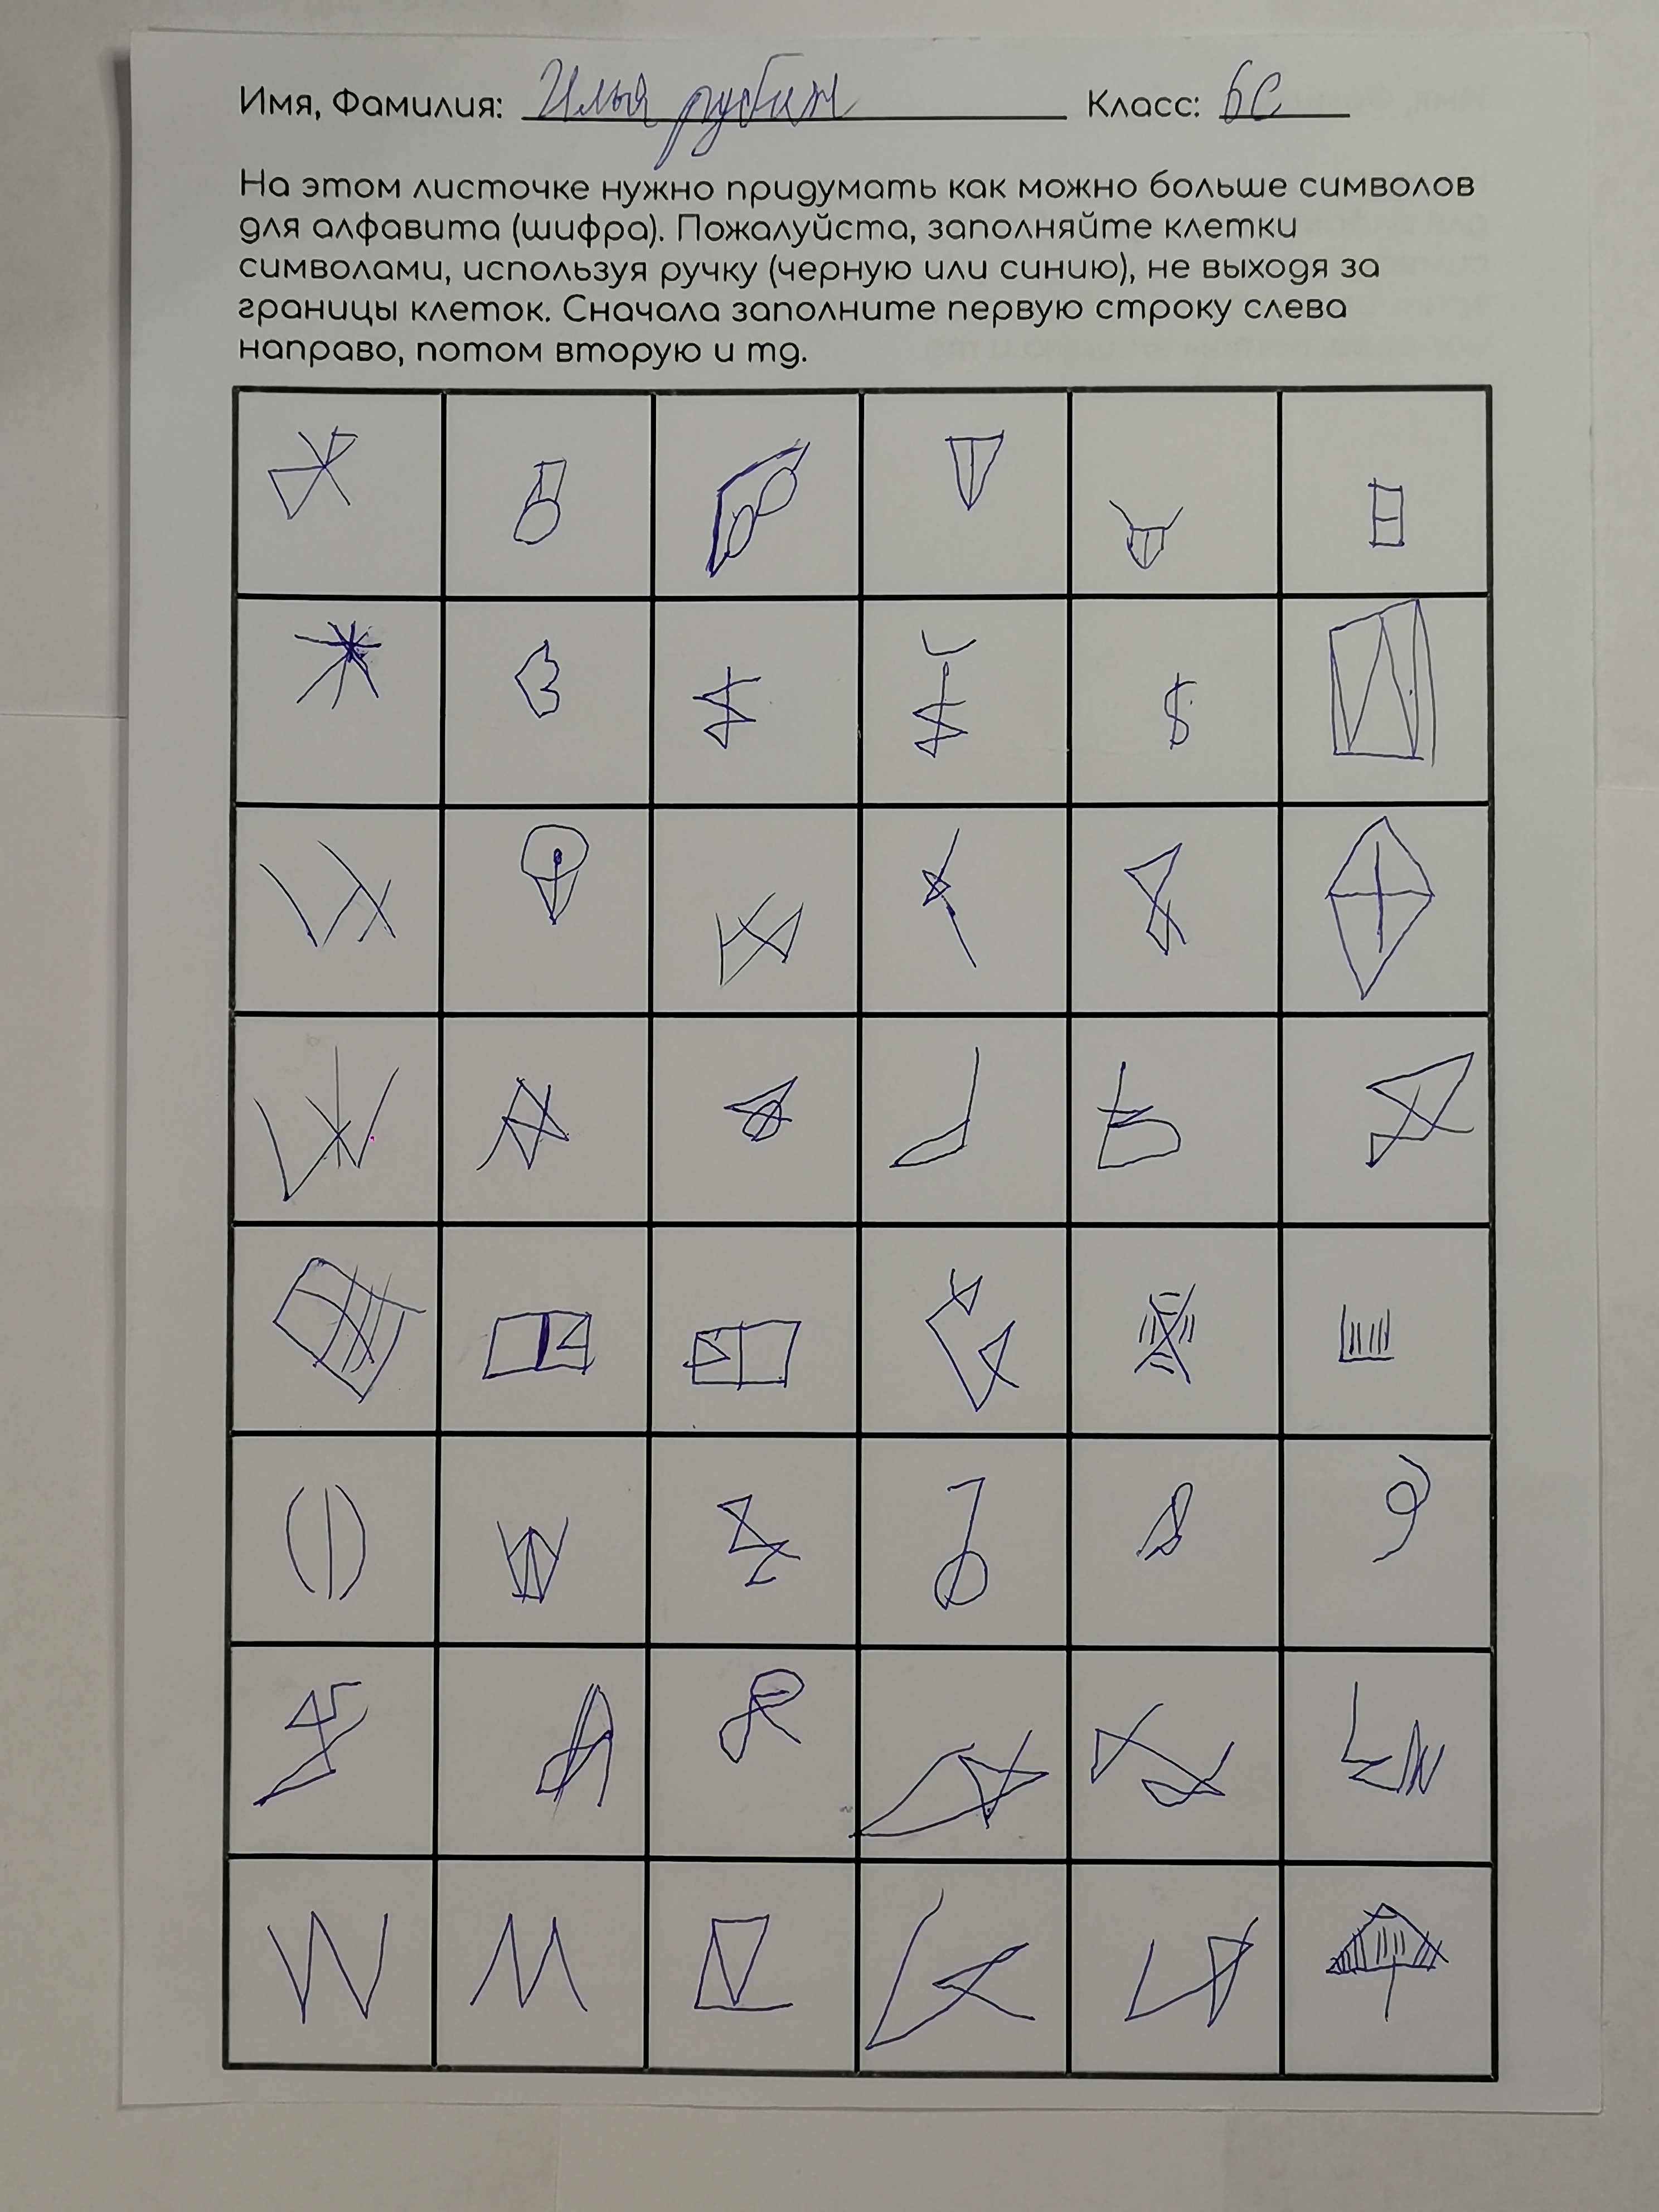 Имя, Фамилия: Илья рубин Класс: 6С
На этом листочке нужно придумать как можно больше символов
для алфавита (шифра). Пожалуйста, заполняйте клетки
символами, используя ручку (черную или синию), не выходя за
границы клеток. Сначала заполните первую строку слева
направо, потом вторую и тд.